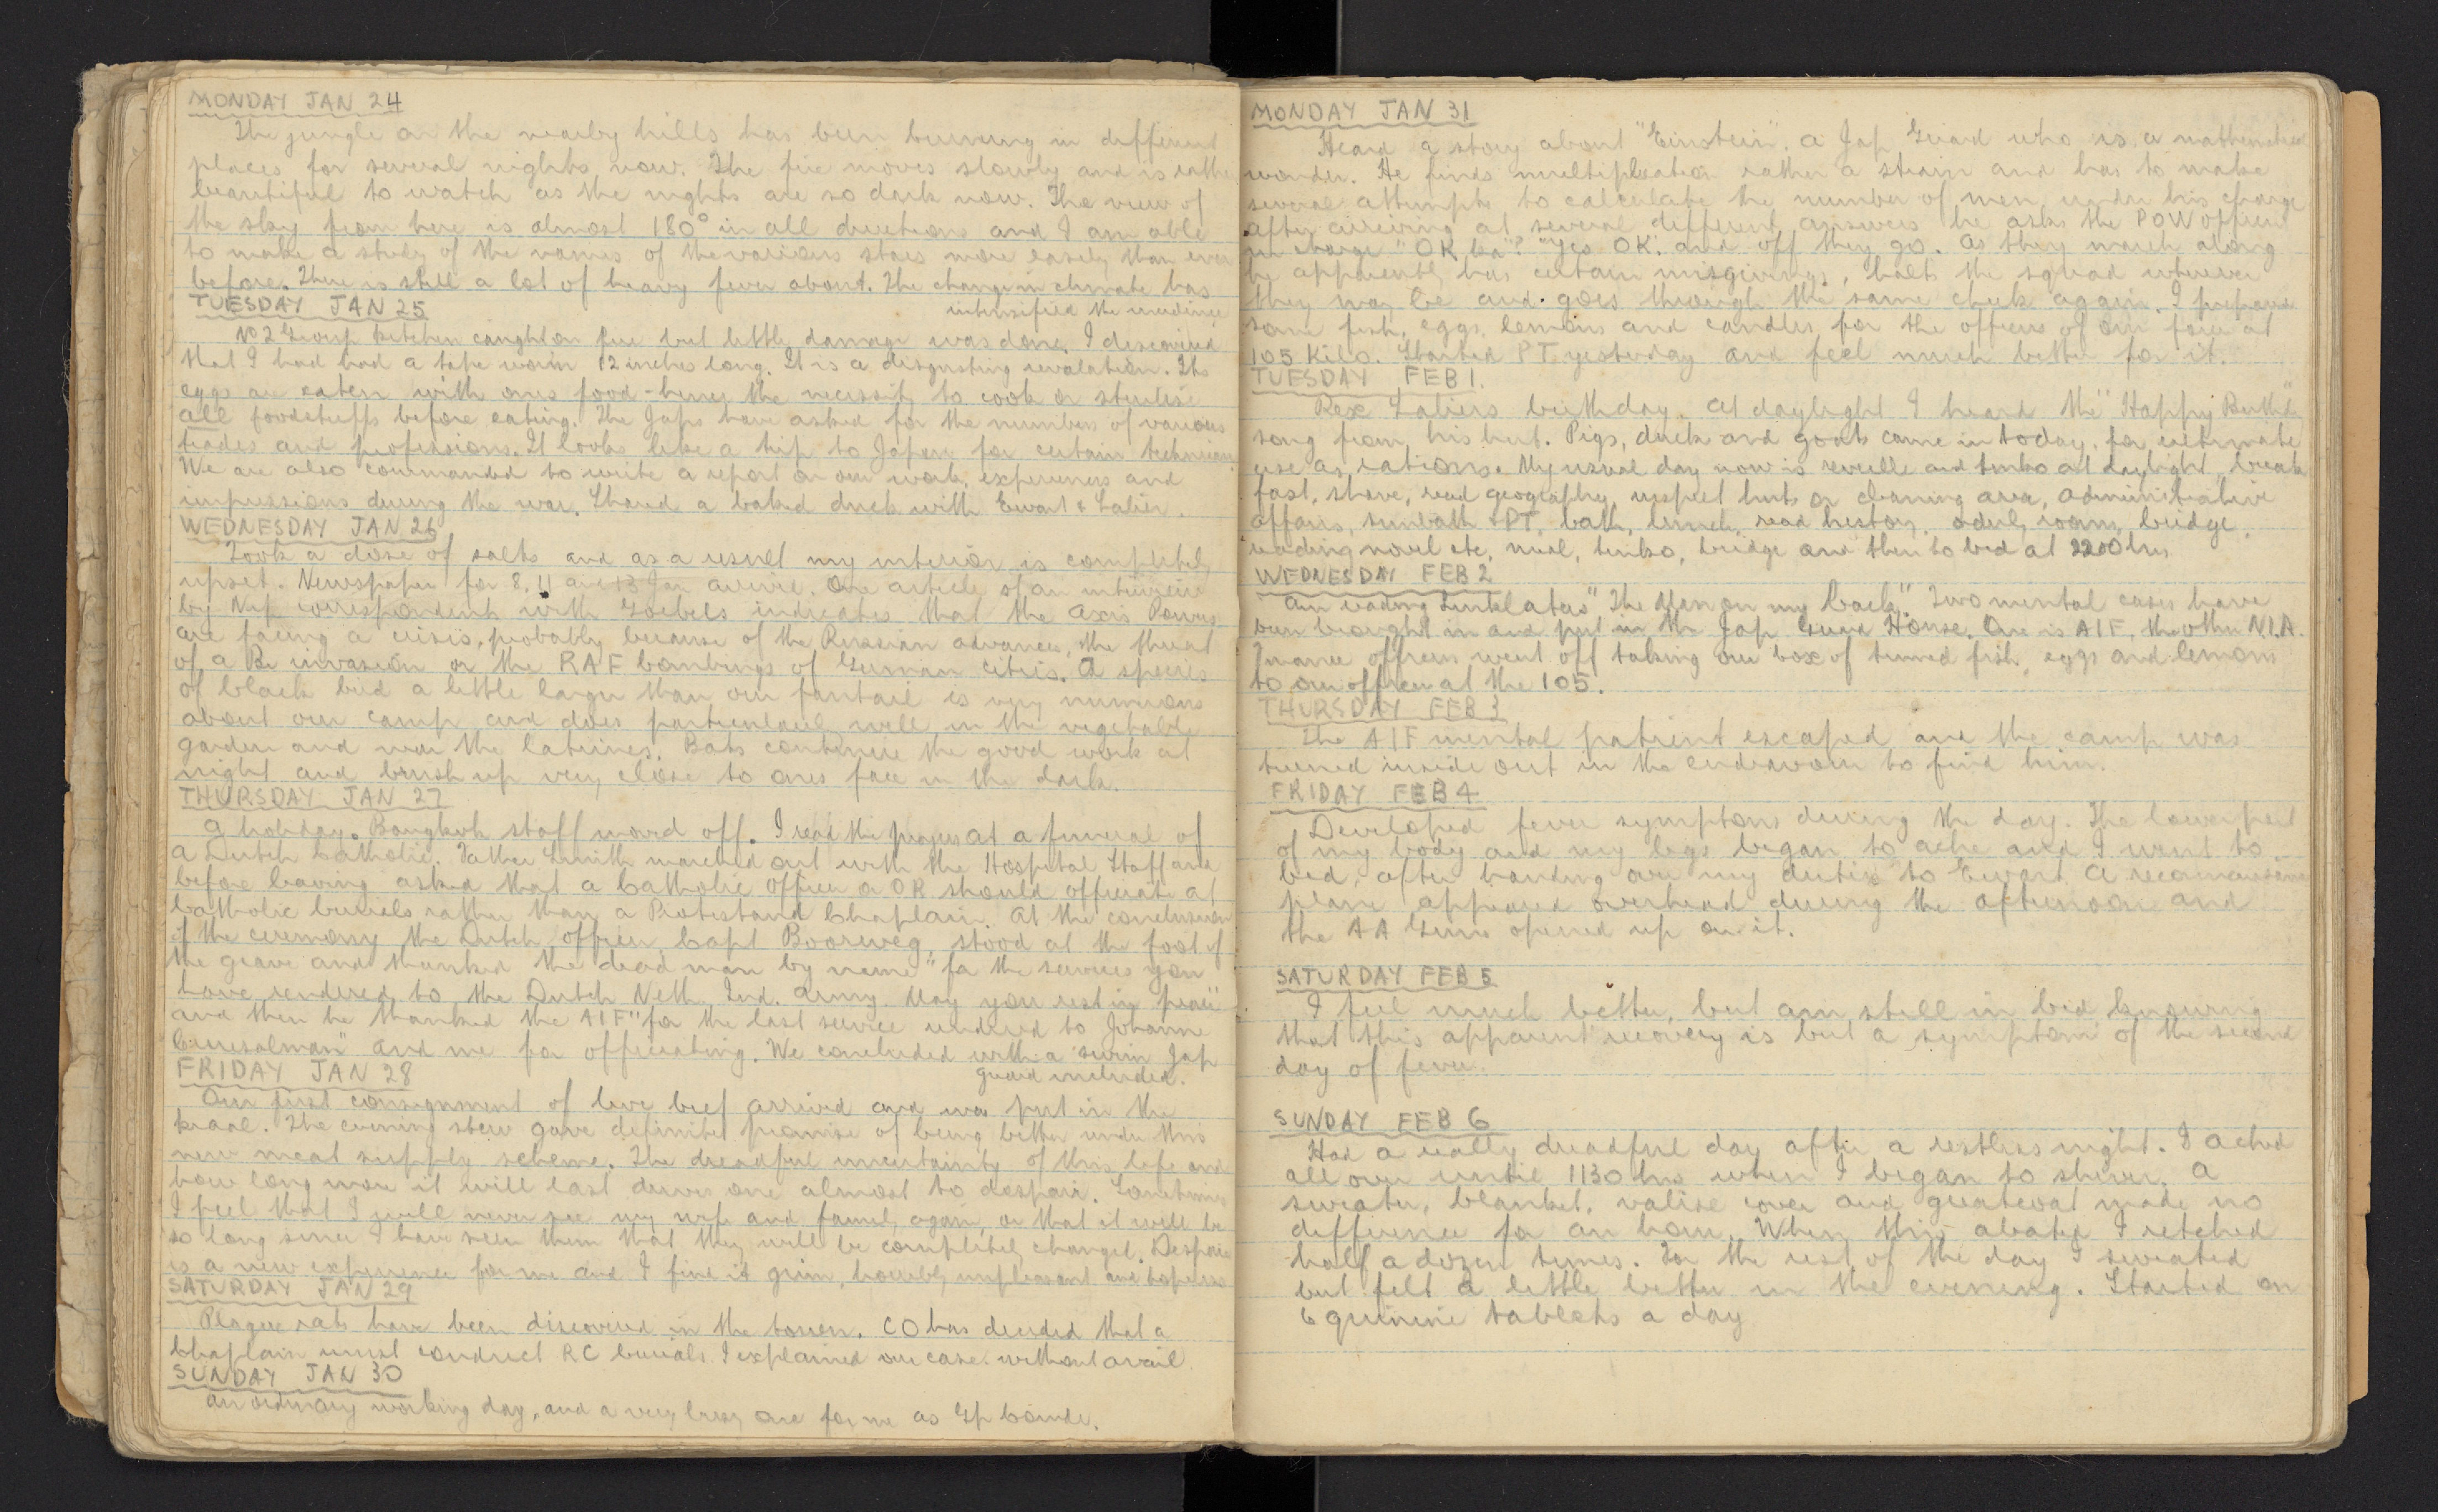 MONDAY JAN 24
The jungle on the nearby hills has been burning in different
places for several nights now. The fire moves slowly and is rather
beautiful to watch as the nights are so dark now. The view of
the sky from here is almost 180° in all directions and I am able
to make a study of the names of the various stars more easily than ever
before. There is still a lot of heavy fever about. The change in climate has
intensified the
TUESDAY JAN 25
No 2 Group kitchen caught on fire but little damage was done. I discovered
that I had had a tape worm 12 inches long. It is a disgusting revalation. Its
eggs are eaten with ones food - hence the necessity to cook or sterilise
all foodstuffs before eating. The Japs have asked for the numbers of various
trades and professions. It looks like a trip to Japan for certain technicians.
We are also commanded to write a report on our work, experiences and
impressions during the war. Shared a baked duck with Ewart & Lalier.
WEDNESDAY JAN 26
Took a dose of salts and as a result my interior is completely
upset. Newspaper for 8, 11 and 13 Jan arrive. One article of an interview
by Nip correspondents with Goebels indicates that the Axis Powers
are facing a crisis, probably because of the Russian advances, the threat
of a Br invasion or the RAF bombings of German cities. A species
of black bird a little larger than our fantail is very numerous
about our camp and does particularly well in the vegetable
garden and near the latrines. Bats continue the good work at
night and brush up very close to ones face in the dark.
THURSDAY JAN 27
A holiday. Bangkok staff moved off. I read the prayers at a funeral of
a Dutch Catholic. Father Smith marched out with the Hospital Staff and
before leaving asked that a Catholic officer or OR should officiate at
Catholic burials rather than a Protestand Chaplain. At the conclusion
of the ceremony the Dutch officer, Capt Boorweg, stood at the foot of
the grave and thanked the dead man by name "for the services you
have rendered to the Dutch Neth. Ind. Army. May you rest in peace"
and then he thanked the AIF "for the last service rendered to Johanne
and me for officiating. We concluded with a swim Jap
guard included.
FRIDAY JAN 28
Our first consignment of live beef arrived and was put in the
kraal. The evening stew gave definite promise of being better under this
new meat supply scheme. The dreadful uncertainty of this life and
how long more it will last drives one almost to despair. Sometimes
I feel that I will never see my wife and family again, or that it will be
so long since I have seen them that they will be completely changed. Despair
is a new experience for me and I find it grim, horribly unpleasant and hopeless
SATURDAY JAN 29
Plague rats have been discovered in the CO has decided that a
Chaplain must conduct RC burials. I explained our case without avail.
SUNDAY JAN 30
An ordinary working day, and a very busy one for me as Gp Comdr.
MONDAY JAN 31
Heard a story about "Einstein", a Jap Guard who is a mathematical
wonder. He finds multiplication rather a strain and has to make
several attempts to calculate the number of men under his charge
after arriving at several different answers he asks the POW officer
in charge "OK ka"? "Yes OK" and off they go. As they march along
he apparently has certain misgivings, halts the squad wherever
they may be and goes through the same check again. I prepared
some fish, eggs, lemons and candles for the officers of our force at
105 Kilo. Started PT yesterday and feel much better for it.
TUESDAY FEB 1.
Rex Laliers birthday. At daylight I heard the "Happy Birthday"
song from his hut. Pigs, duck and goats came in today, for ultimate
use as rations. My usual day now is reveille and tenko at daylight, break-
fast, shave, read geography, inspect huts or cleaning area, administrative
affairs, sunbath & PT, bath, lunch, read history, orderly room, bridge,
reading novel etc, meal, tenko, bridge and then to bed at 2200 hrs
WEDNESDAY FEB 2
Am reading Linklaters "The Men on my back". Two mental cases have
been brought in and put in the Jap Guard House. One is AIF, the other N.I.A.
Finance officers went off taking our box of tinned fish, eggs and lemons
to our officers at the 105.
THURSDAY FEB 3
The AIF mental patient escaped and the camp was
turned inside out in the endeavour to find him.
FRIDAY FEB 4
Developed fever symptoms during the day. The lower part
of my body and my legs began to ache and I went to
bed, after handing over my duties to Ewart. A reconnaissance
plane appeared overhead during the afternoon and
the AA Guns opened up on it.
SATURDAY FEB 5
I feel much better, but am still in bed knowing
that this apparent recovery is but a symptom of the second
day of fever.
SUNDAY FEB 6
Had a really dreadful day after a restless night. I ached
all over until 1130 hrs when I began to shiver. A
sweater, blanket, valise cover and greatcoat made no
difference for an hour. When this abated I retched
half a dozen times. For the rest of the day I sweated
but felt a little better in the evening. Started on
6 quinine tablets a day